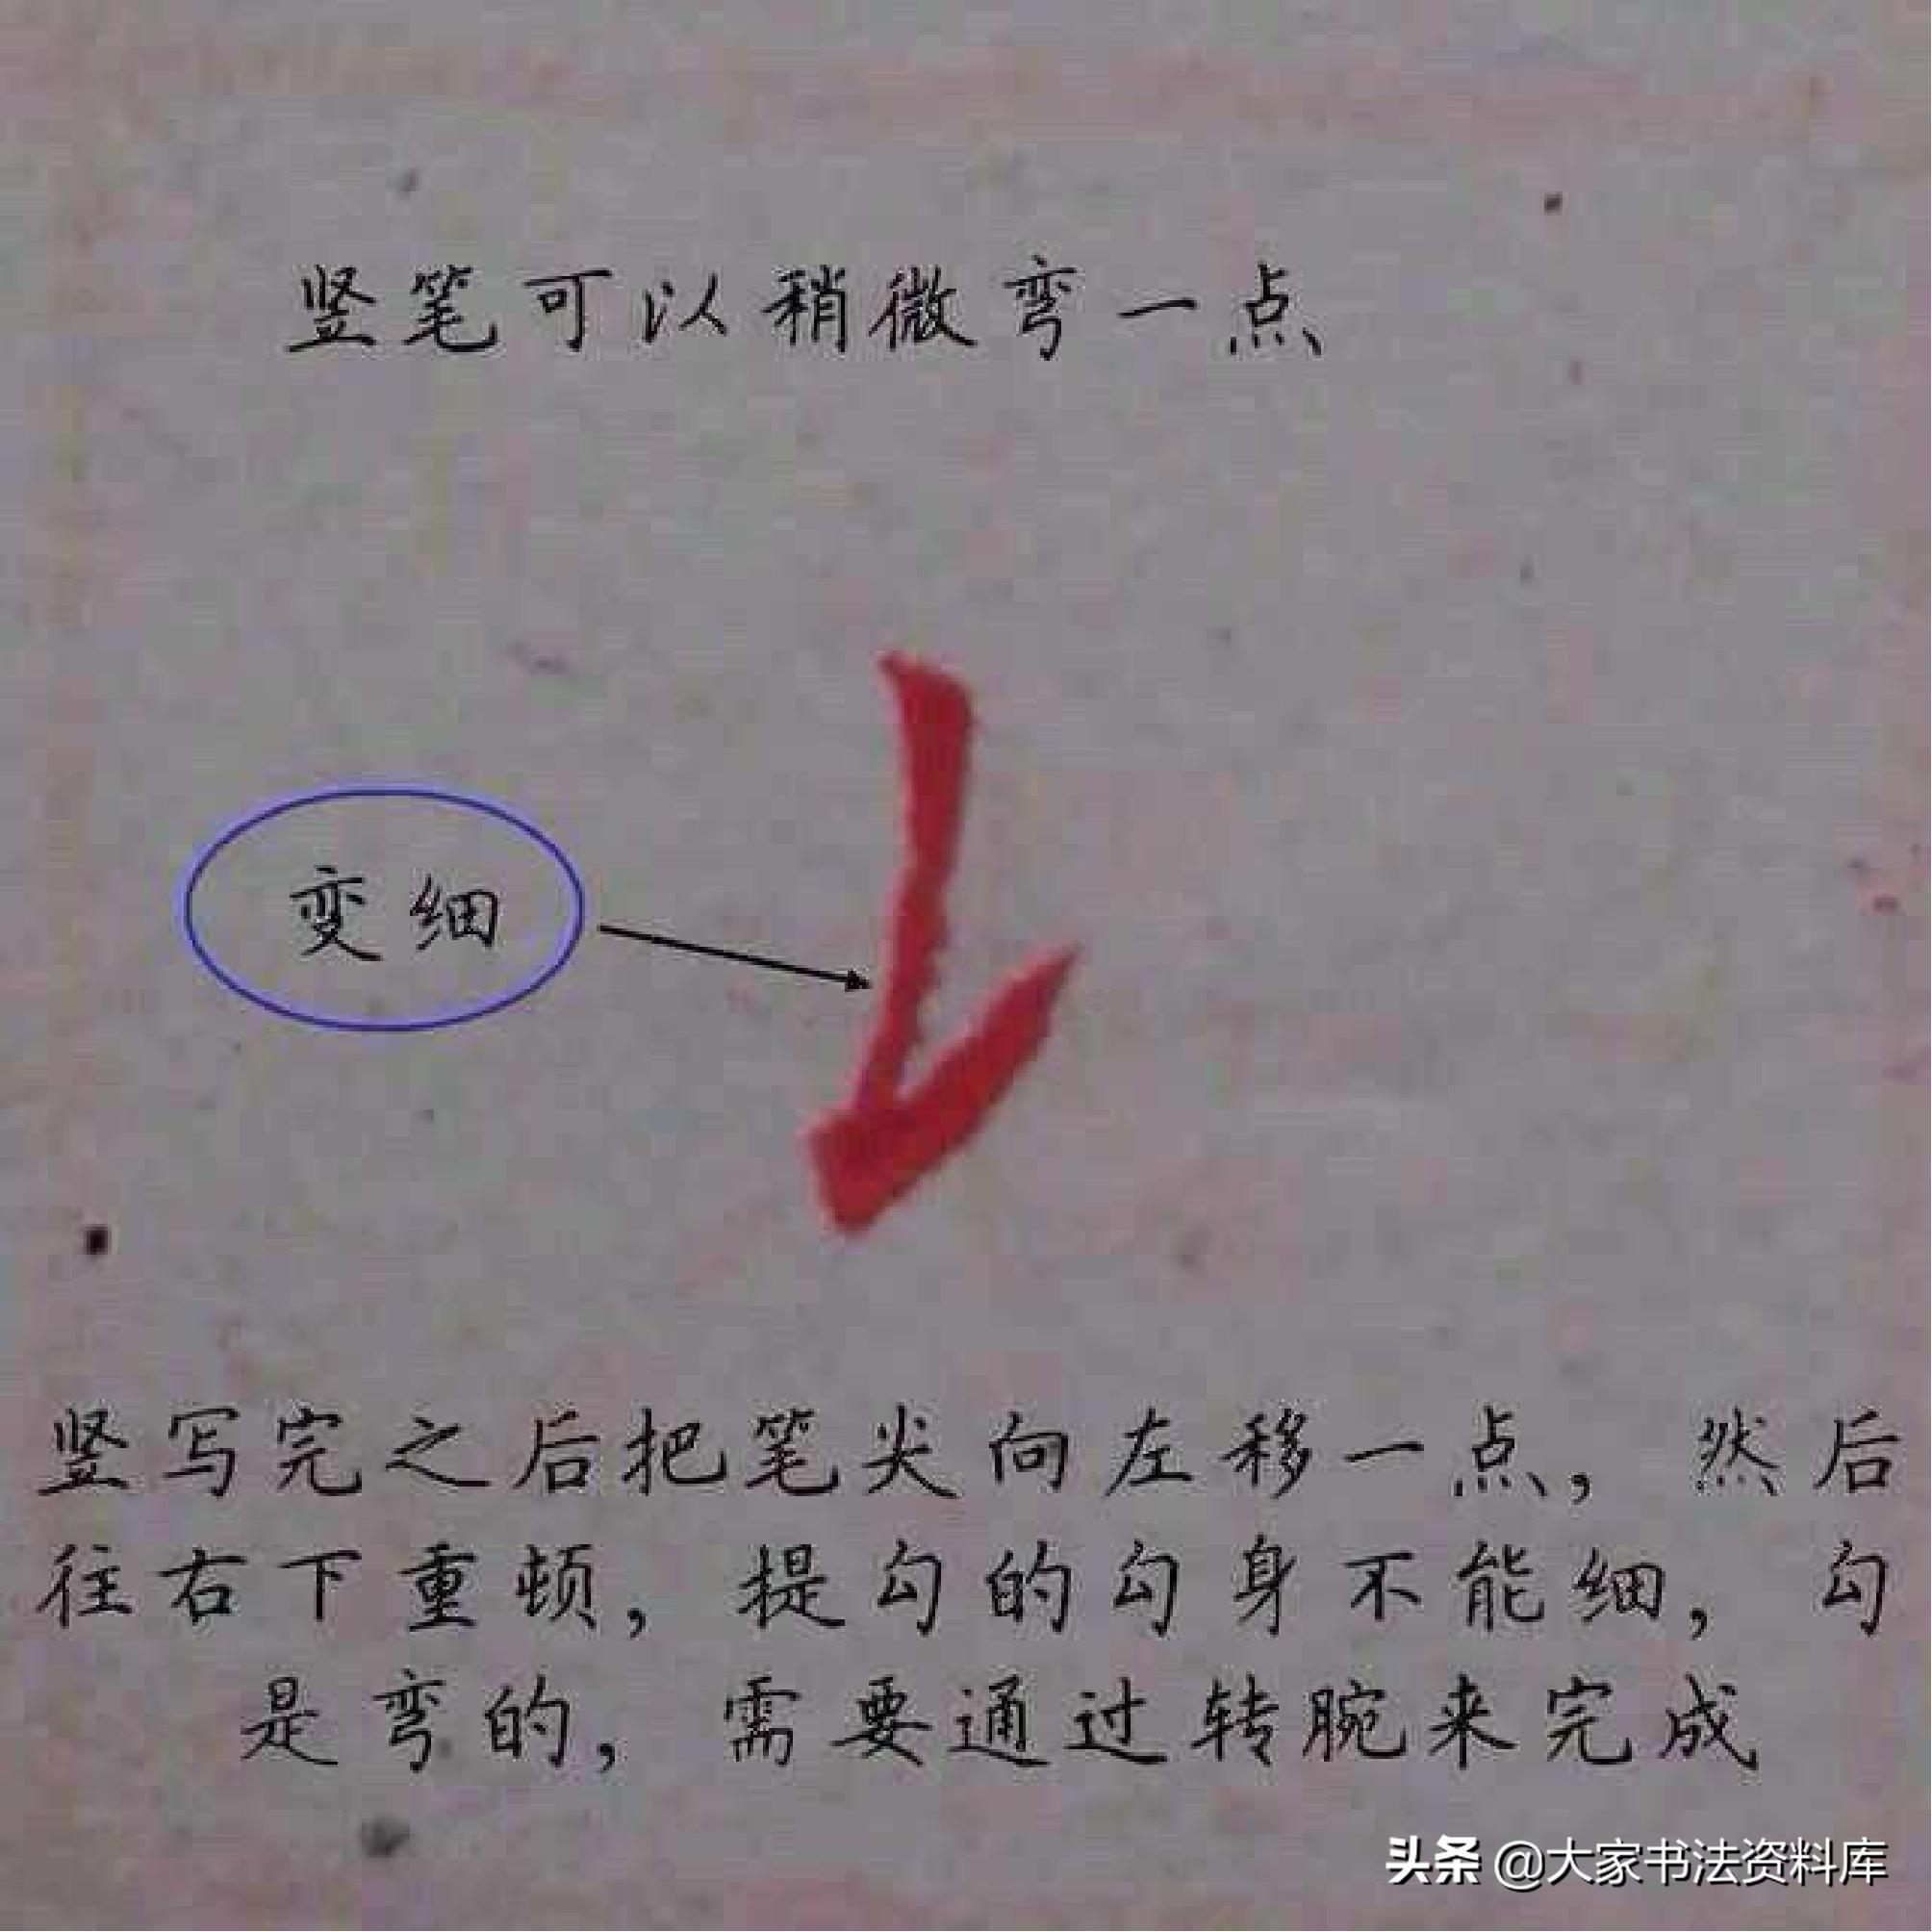 竖笔可以稍微弯一点
变细
竖写完之后把笔尖向左移一点，然后
往右下重顿，提勾的勾身不能细，勾
是弯的，需要通过转腕来完成
头条 @大家书法资料库